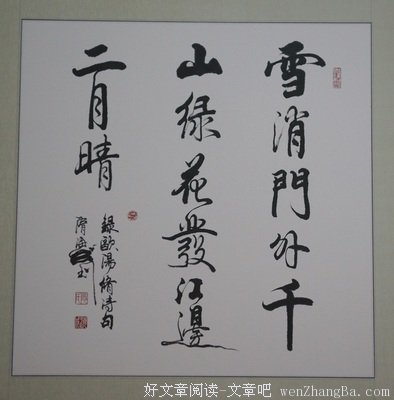 雪消門外千
山綠花發江邊
二月晴
錄歐陽脩詩句
好文章阅读-文章吧 wenZhangBa.com